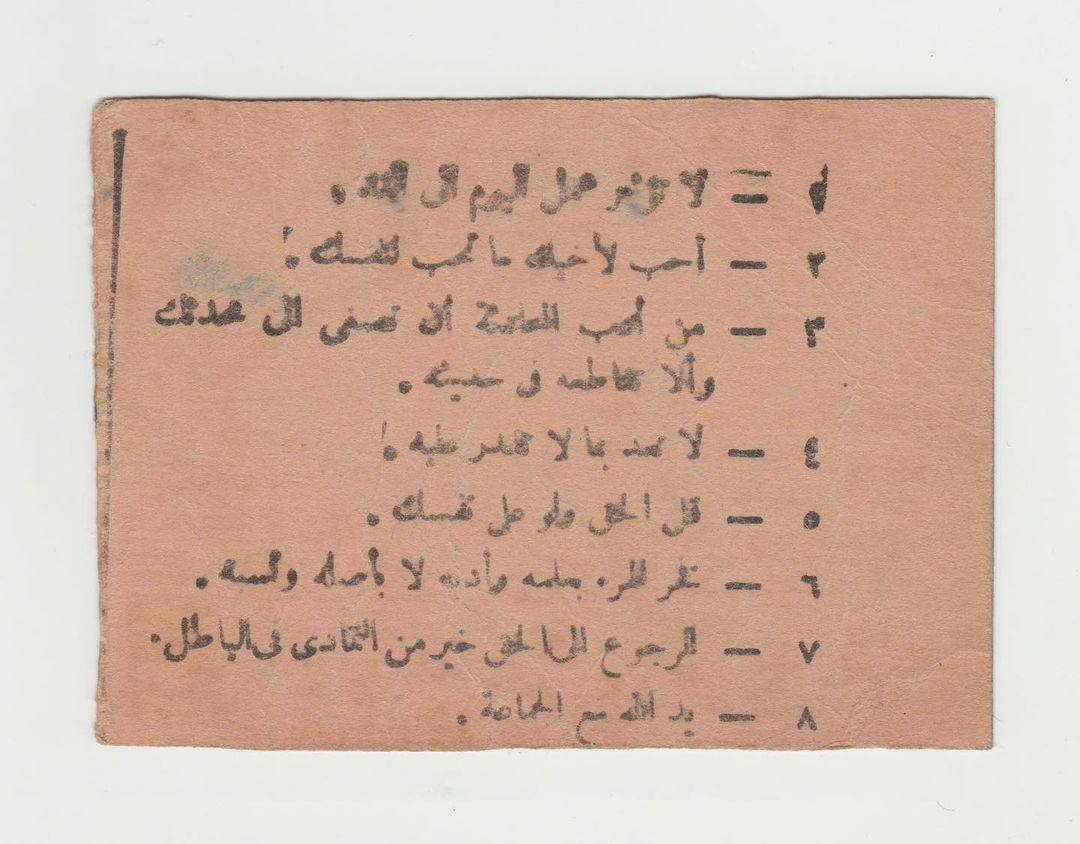 ١ — لا تؤخر عمل اليوم الى الغد .
٢ — أحب لأخيك ما تحب لنفسك !
٣ — من أدب المعاملة أن تصغى الى محدثك
وألا تقاطعه فى حديثه .
٤ — لا تعد بما لا تقدر عليه !
٥ — قل الحق ولو على نفسك .
٦ — فخر المرء بعلمه وأدبه لا بأصله ونسبه .
٧ — الرجوع الى الحق خير من التمادى فى الباطل .
٨ — يد الله مع الجماعة .